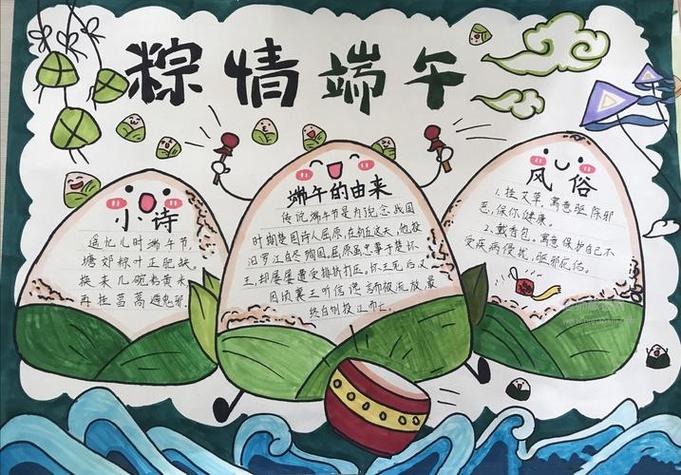 粽情端午
小诗
遥忆儿时端午节，
塘郊粽叶正肥时。
换来几碗
再挂菖蒿避鬼邪。
端午的由来
传说端午节是为纪念战国
时期楚国诗人屈原，在的这天，他投
汨罗江自尽殉国。屈原虽忠事于楚怀
王，却屡屡遭受排挤打压，怀王死后又
因顷襄王听信谗言而被流放，最
终自刎投江而亡。
风俗
1.挂艾草，寓意驱除邪
恶，保你健康。
2.戴香包，寓意保护自己不
受疾病侵扰，驱邪